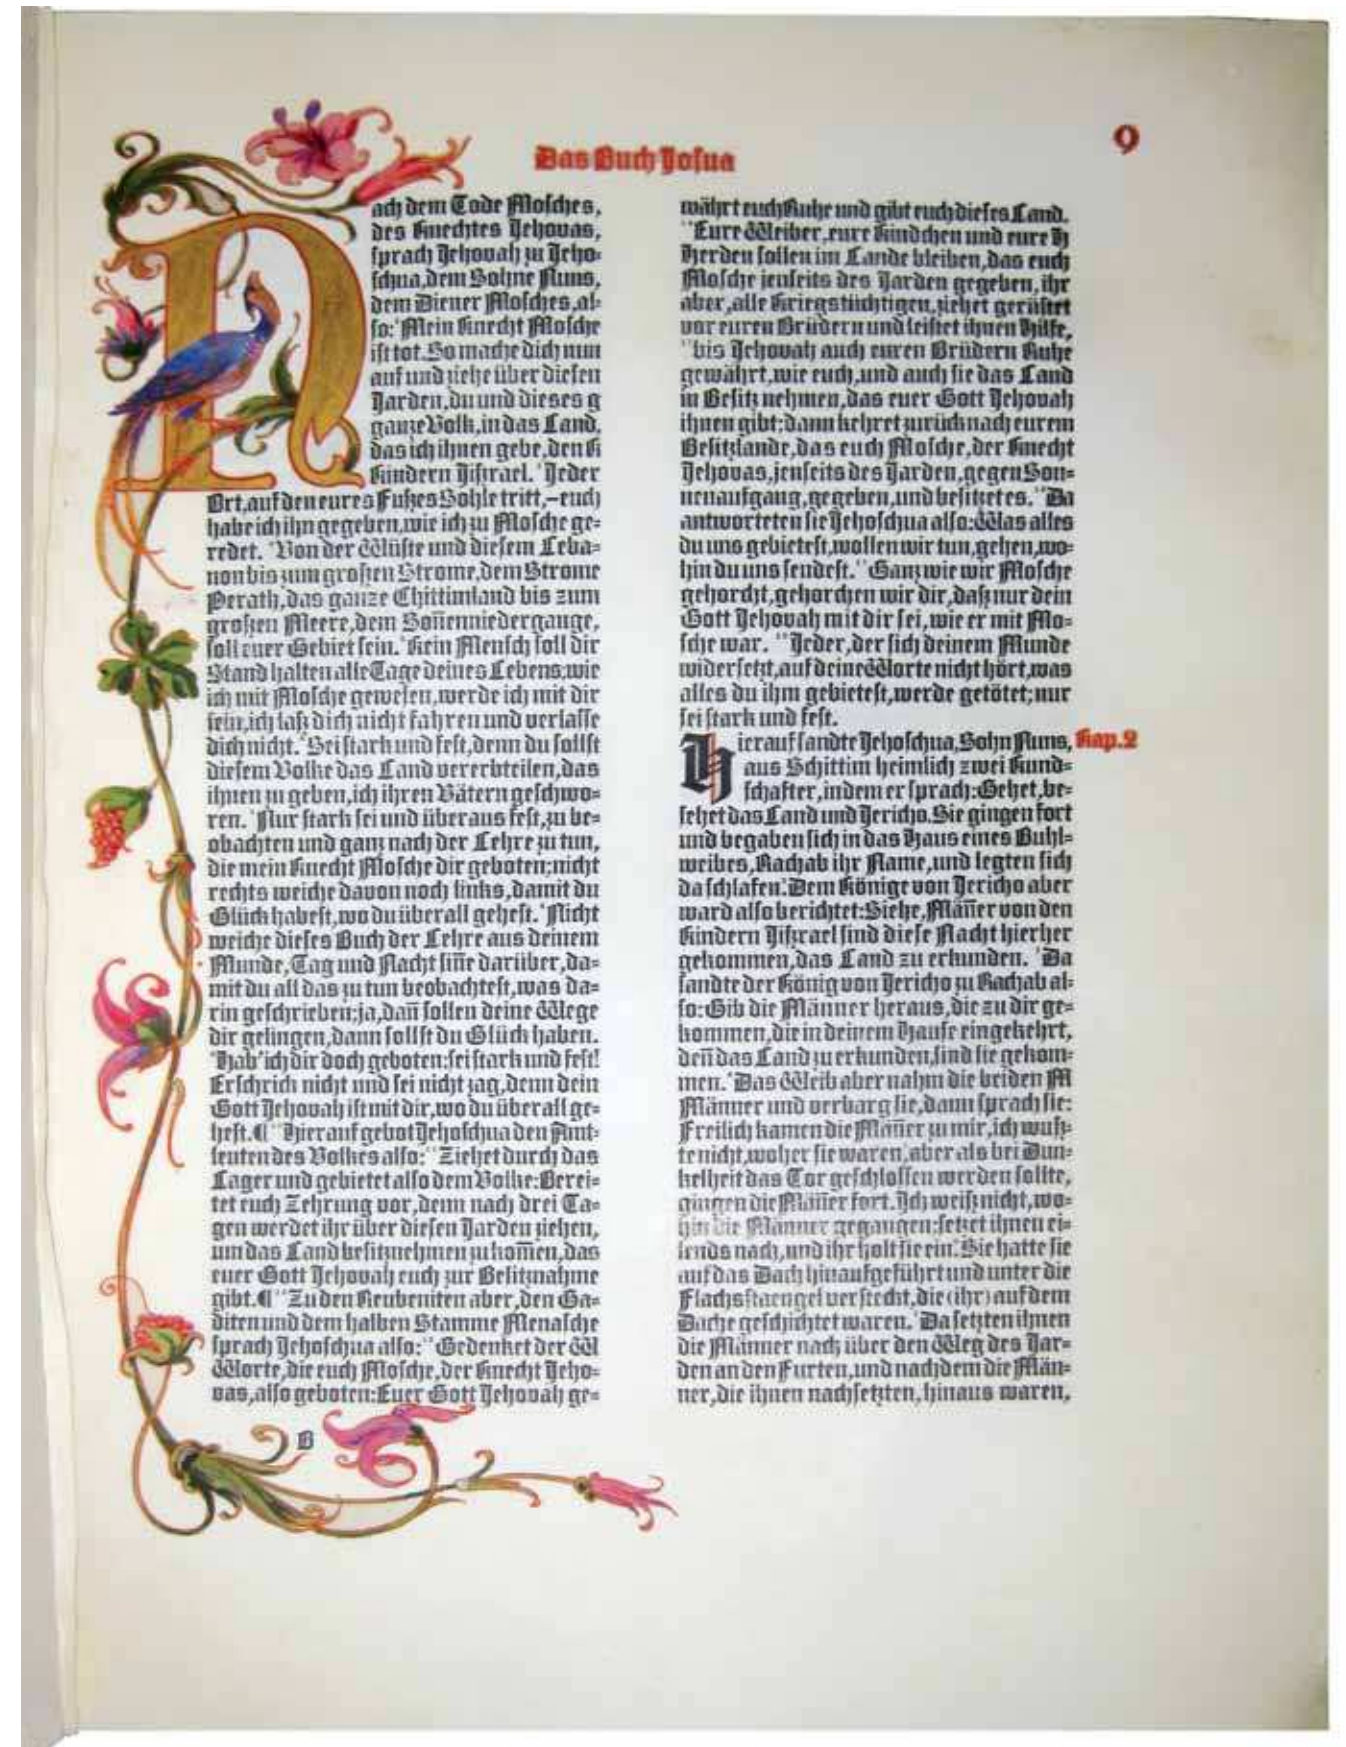 Das Buch Josua
9
Nach dem Tode Mosches,
des Knechtes Jehovas,
sprach Jehovah zu Jeho=
schua, dem Sohne Nuns,
dem Diener Mosches, al=
so: Mein Knecht Mosche
ist tot. So mache dich nun
auf und ziehe über diesen
Jarden, du und dieses g
ganze Volk, in das Land,
das ich ihnen gebe, den K
Kindern Jißrael. Jeder
Ort, auf den eures Fußes Sohle tritt, – euch
habe ich ihn gegeben, wie ich zu Mosche ge=
redet. Von der Wüste und diesem Leba=
non bis zum großen Strome, dem Strome
Perath, das ganze Chittimland bis zum
großen Meere, dem Soñenniedergange,
soll euer Gebiet sein. Kein Mensch soll dir
Stand halten alle Tage deines Lebens; wie
ich mit Mosche gewesen, werde ich mit dir
sein, ich laß dich nicht fahren und verlasse
dich nicht. Sei stark und fest, denn du sollst
diesem Volke das Land vererbteilen, das
ihnen zu geben, ich ihren Vätern geschwo=
ren. Nur stark sei und überaus fest, zu be=
obachten und ganz nach der Lehre zu tun,
die mein Knecht Mosche dir geboten; nicht
rechts weiche davon noch links, damit du
Glück habest, wo du überall gehest. Nicht
weiche dieses Buch der Lehre aus deinem
Munde, Tag und Nacht siñe darüber, da=
mit du all das zu tun beobachtest, was da=
rin geschrieben; ja, dañ sollen deine Wege
dir gelingen, dann sollst du Glück haben.
Hab' ich dir doch geboten: sei stark und fest!
Erschrick nicht und sei nicht zag, denn dein
Gott Jehovah ist mit dir, wo du überall ge=
hest. ¶ Hierauf gebot Jehoschua den Amt=
leuten des Volkes also: Ziehet durch das
Lager und gebietet also dem Volke: Berei=
tet euch Zehrung vor, denn nach drei Ta=
gen werdet ihr über diesen Jarden ziehen,
um das Land besitznehmen zu kom̄en, das
euer Gott Jehovah euch zur Besitznahme
gibt. ¶ Zu den Reubeniten aber, den Ga=
diten und dem halben Stamme Menasche
sprach Jehoschua also: Gedenket der W
Worte, die euch Mosche, der Knecht Jeho=
vas, also geboten: Euer Gott Jehovah ge=
B
währt euch Ruhe und gibt euch dieses Land.
Eure Weiber, eure Kindchen und eure H
Herden sollen im Lande bleiben, das euch
Mosche jenseits des Jarden gegeben, ihr
aber, alle Kriegstüchtigen, ziehet gerüstet
vor euren Brüdern und leistet ihnen Hilfe,
bis Jehovah auch euren Brüdern Ruhe
gewährt, wie euch, und auch sie das Land
in Besitz nehmen, das euer Gott Jehovah
ihnen gibt; dann kehret zurück nach eurem
Besitzlande, das euch Mosche, der Knecht
Jehovas, jenseits des Jarden, gegen Son=
nenaufgang, gegeben, und besitzet es. Da
antworteten sie Jehoschua also: Was alles
du uns gebietest, wollen wir tun, gehen, wo=
hin du uns sendest. Ganz wie wir Mosche
gehorcht, gehorchen wir dir, daß nur dein
Gott Jehovah mit dir sei, wie er mit Mo=
sche war. Jeder, der sich deinem Munde
widersetzt, auf deine Worte nicht hört, was
alles du ihm gebietest, werde getötet; nur
sei stark und fest.
Hierauf sandte Jehoschua, Sohn Nuns, Kap. 2
aus Schittim heimlich zwei Kund=
schafter, indem er sprach: Gehet, be=
sehet das Land und Jericho. Sie gingen fort
und begaben sich in das Haus eines Buhl=
weibes, Rachab ihr Name, und legten sich
da schlafen. Dem Könige von Jericho aber
ward also berichtet: Siehe, Mäñer von den
Kindern Jißrael sind diese Nacht hierher
gekommen, das Land zu erkunden. Da
sandte der König von Jericho zu Rachab al=
so: Gib die Männer heraus, die zu dir ge=
kommen, die in deinem Hause eingekehrt,
deñ das Land zu erkunden, sind sie gekom=
men. Das Weib aber nahm die beiden M
Männer und verbarg sie, dann sprach sie:
Freilich kamen die Mäñer zu mir, ich wuß=
te nicht, woher sie waren, aber als bei Dun=
kelheit das Tor geschlossen werden sollte,
gingen die Mäñer fort. Ich weiß nicht, wo=
hin die Männer gegangen: setzet ihnen ei=
lends nach, und ihr holt sie ein. Sie hatte sie
auf das Dach hinaufgeführt und unter die
Flachsstaengel versteckt, die (ihr) auf dem
Dache geschichtet waren. Da setzten ihnen
die Männer nach über den Weg des Jar=
den an den Furten, und nachdem die Män=
ner, die ihnen nachsetzten, hinaus waren,